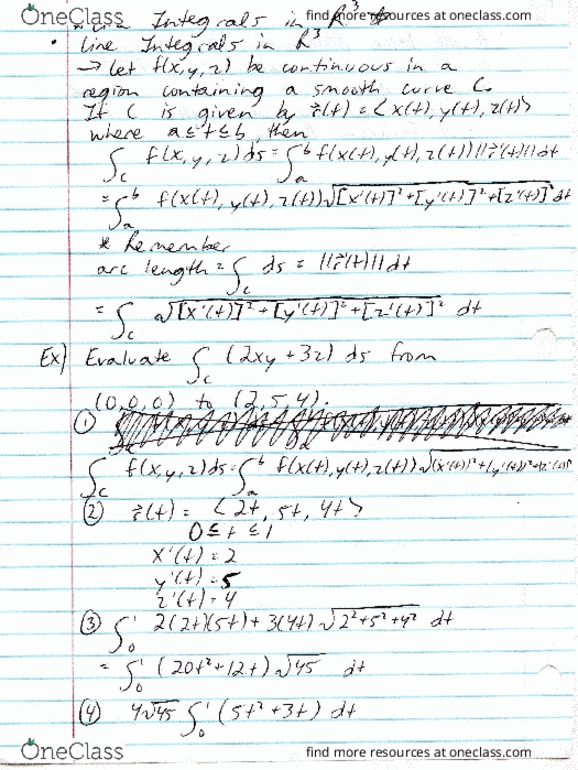 OneClass find more resources at oneclass.com
Line Integrals in R³
• Line Integrals in R³
→ Let f(x,y,z) be continuous in a
region containing a smooth curve C.
If C is given by r⃗(t) = <x(t), y(t), z(t)>
where a≤t≤b, then
∫_C f(x,y,z)ds = ∫_a^b f(x(t), y(t), z(t)) ||r⃗'(t)|| dt
= ∫_a^b f(x(t), y(t), z(t)) √([x'(t)]² + [y'(t)]² + [z'(t)]²) dt
* Remember
arc length = ∫_C ds = ||r⃗'(t)|| dt
= ∫_C √([x'(t)]² + [y'(t)]² + [z'(t)]²) dt
Ex) Evaluate ∫_C (2xy + 3z) ds from
(0,0,0) to (2,5,4).
①
∫_C f(x,y,z)ds = ∫_a^b f(x(t), y(t), z(t)) √((x'(t))² + (y'(t))² + (z'(t))²
② r⃗(t) = <2t, 5t, 4t>
0 ≤ t ≤ 1
x'(t) = 2
y'(t) = 5
z'(t) = 4
③ ∫_0^1 2(2t)(5t) + 3(4t) √(2² + 5² + 4²) dt
= ∫_0^1 (20t² + 12t) √45 dt
④ 4√45 ∫_0^1 (5t² + 3t) dt
OneClass find more resources at oneclass.com